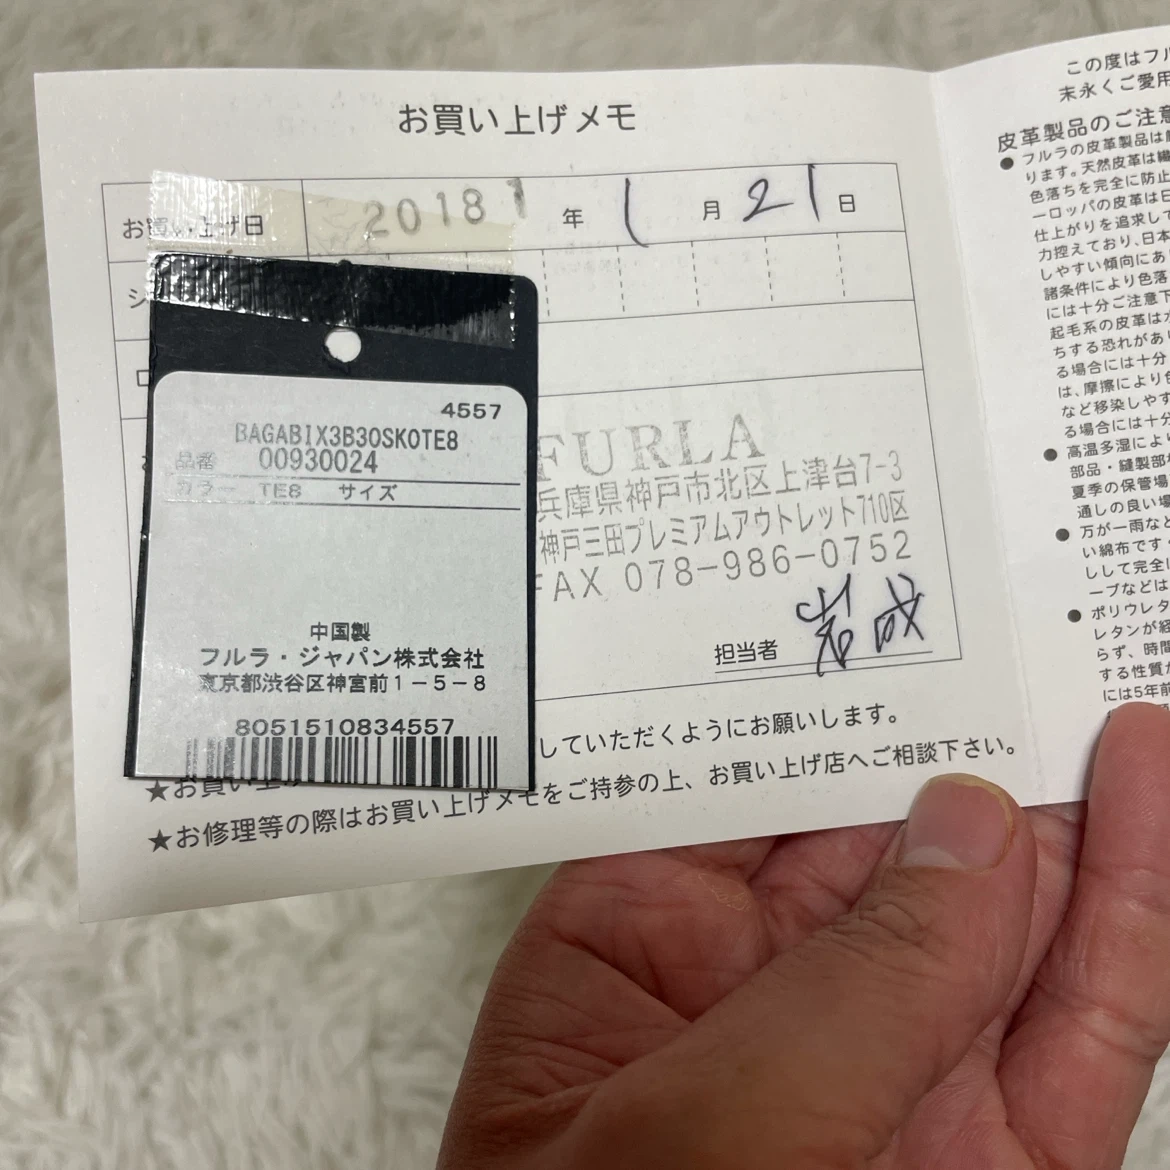 お買い上げメモ
お買い上げ日 2018 年 1 月 21 日
シ
ロ
4557
BAGABIX3B30SK0TE8
品番 00930024
カラー TE8 サイズ
中国製
フルラ・ジャパン株式会社
東京都渋谷区神宮前1-5-8
8051510834557
FURLA
兵庫県神戸市北区上津台7-3
神戸三田プレミアムアウトレット710区
FAX 078-986-0752
担当者 岩成
していただくようにお願いします。
★お買い上
★お修理等の際はお買い上げメモをご持参の上、お買い上げ店へご相談下さい。
この度はフル
末永くご愛用
皮革製品のご注意
●フルラの皮革製品は
ります。天然皮革は繊
色落ちを完全に防止
ーロッパの皮革は日
仕上がりを追求して
力控えており、日本
しやすい傾向にあ
諸条件により色落
には十分ご注意下
起毛系の皮革は水
ちする恐れがあり
る場合には十分
は、摩擦により色
など移染しやす
る場合には十分
●高温多湿によ
部品・縫製部
夏季の保管場
通しの良い場
●万が一雨など
い綿布です
しして完全に
ーブなどは
●ポリウレタ
レタンが経
らず、時間
する性質が
には5年前